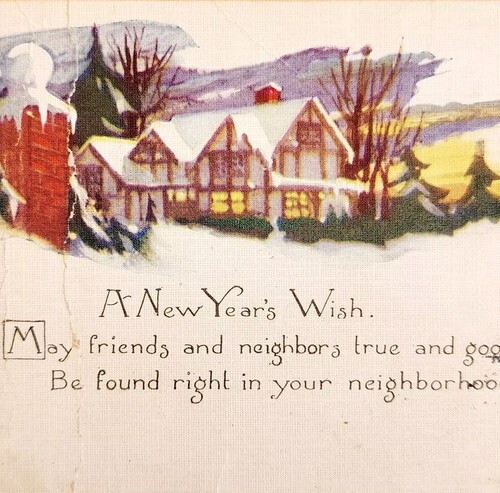 A New Year's Wish.
May friends and neighbors true and goo
Be found right in your neighborhoo